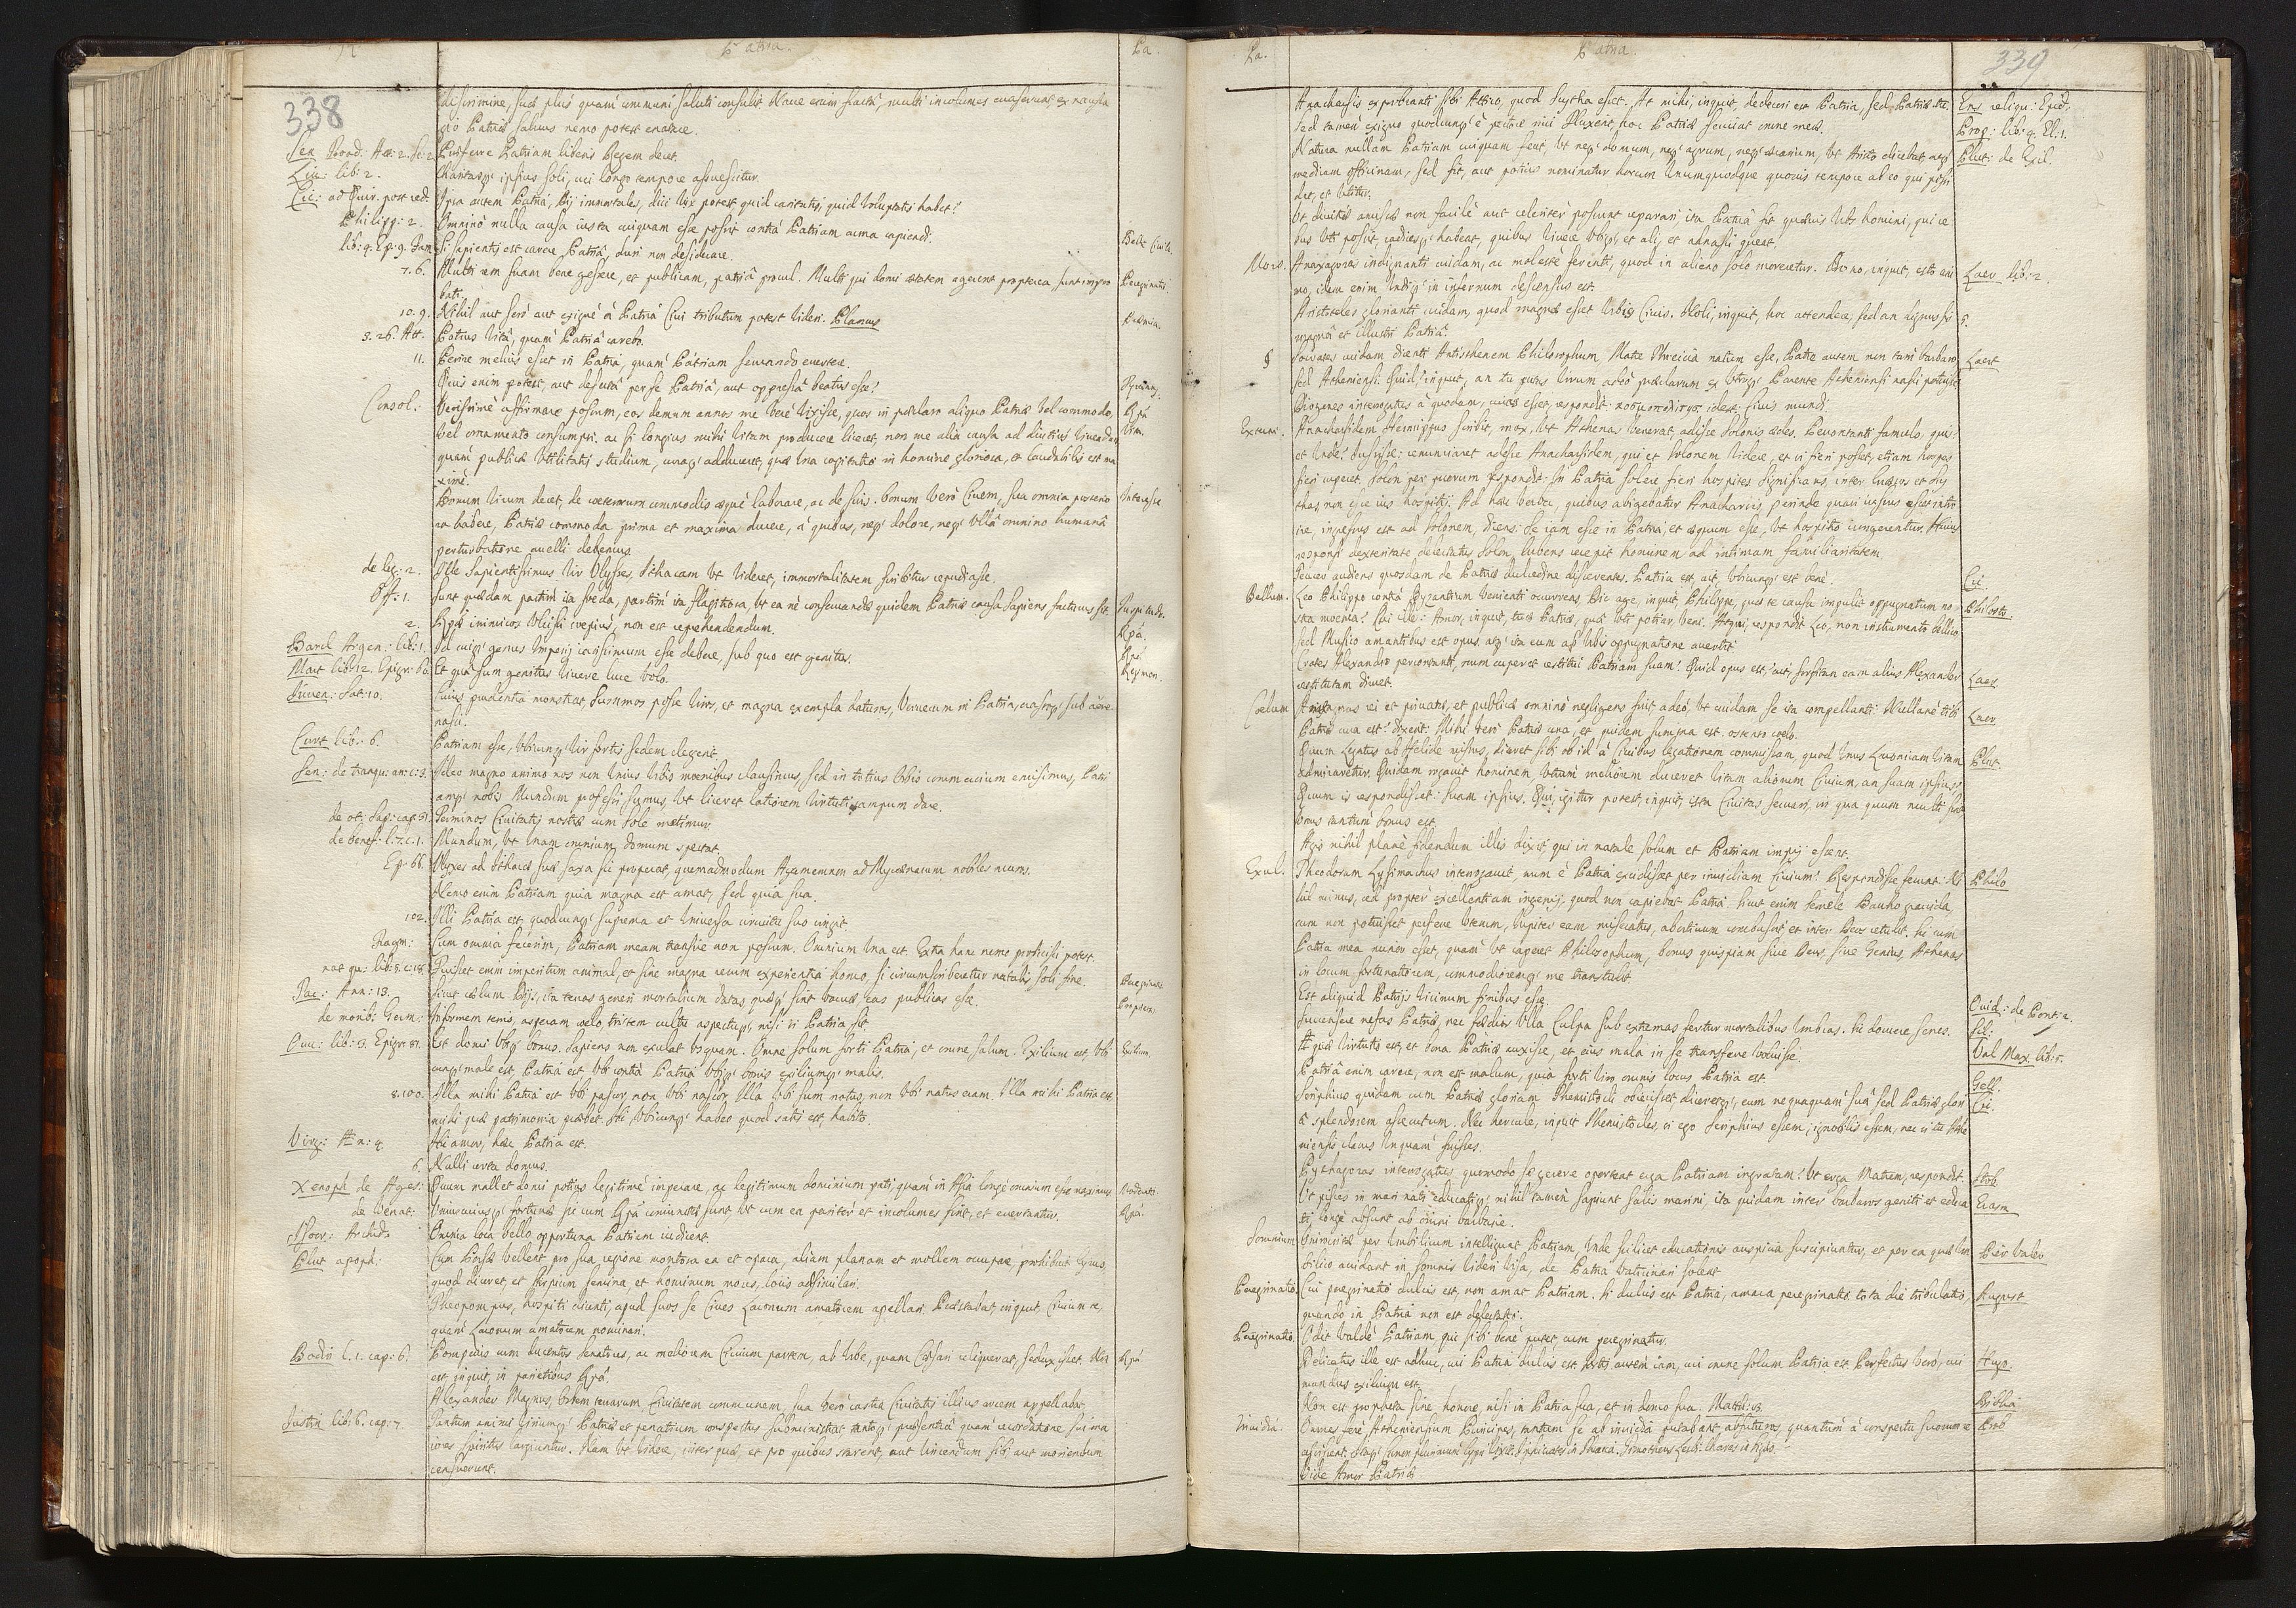 Patria. Pa.
338
discrimine, sed plus quam communi saluti consulit. Naue enim fracta, multi incolumes euaserunt, ex naufra
gio Patriæ saluus nemo potest enatare.
Sen. Troad. Act: 2. Sc: 2. Præferre Patriam liberis Regem decet.
Liu: lib: 2. Charitasq; ipsius soli, cui longo tempore assuescitur.
Cic: ad Quir. post red. Ipsa autem Patria, Dij immortales, dici vix potest quid caritatis, quid voluptatis habet!
Philipp: 2. Omnino nulla causa iusta cuiquam esse possit contra Patriam arma capiendi. Bell: Ciuile
lib: 4. Ep: 9. Fam. Si sapientis est carere Patria, duri non desiderare.
7. 6. Multi rem suam bene gessere, et publicam, patria procul. Multi qui domi ætatem agerent propterea sunt impro Peregrinatio.
bati.
10. 9. Nihil aut sero aut exigue à Patria Ciui tributum potest videri. Plancus Præmia.
3. 26. Att. Potius vita, quam Patria carebo.
11. Perire melius esset in Patria, quam Patriam seruando euertere.
Quis enim potest, aut deserta per se Patria, aut oppressa beatus esse?
Consol. Verissime affirmare possum, eos demum annos me vere vixisse, quos in præclaro aliquo Patriæ vel commodo, Rpa
vel ornamento consumpsi. ac si longius mihi vitam producere liceret, non me alia causa ad diutius viuendum
quam publicæ vtilitatis studium, unaq; adduceret, quæ una cogitatio in homine gloriosa, et laudabilis est ma
xime.
Bonum virum decet, de cæterorum commodis æque laborare, ac de suis. bonum vero Ciuem, sua omnia postero
ra habere, Patriæ commoda prima et maxima ducere, à quibus, neq; dolore, neq; vlla omnino humana
perturbatione auelli debemus.
de leg: 2. Ille Sapientissimus vir Vlysses, Ithacam vt videret, immortalitatem scribitur repudiasse.
Off: 1. Sunt quædam partim ita fœda, partim ita flagitiosa, vt ea ne conseruandæ quidem Patriæ causa Sapiens facturus sit. Turpitudo.
2. Rpæ inimicos vlcisci cupiens, non est reprehendendum. Rpa.
Barcl. Argen: lib: 1. Id cuiq; genus Imperij carissimum esse debere, sub quo est genitus.
Mart. lib: 12. Epigr: 60. Et qua sum genitus viuere luce volo.
Iuuen: Sat: 10. Cuius prudentia monstrat, Summos posse viros, et magna exempla daturos, Veruecum in Patria, crassoq; sub aëre
nasci.
Curt. lib: 6. Patriam esse, vbicunq; vir fortis sedem elegerit.
Sen: de tranqu: an: c: 3. Ideo magno animo nos non vnius vrbis mœnibus clausimus, sed in totius Orbis commercium emisimus, Patri
amq; nobis Mundum professi sumus, vt liceret latiorem virtuti campum dare.
de ot: sap: cap: 31. Terminos Ciuitatis nostræ cum Sole metimur.
de benef: l: 7. c. 1. Mundum, vt unam omnium domum spectat.
Ep: 66. Vlysses ad Ithacæ suæ saxa sic properat, quemadmodum Agamemnon ad Mycænarum nobiles muros.
Nemo enim Patriam quia magna est amat, sed quia sua.
102. Illi Patria est, quodcunq; suprema et vniuersa circuitu suo cingit.
Cum omnia fecerim, Patriam meam transire non possum. Omnium una est. Extra hanc nemo proijcisci potest.
nat. qu: lib: 5. c: 18. Fuisset enim imperitum animal, et sine magna rerum experientia homo, si circumscriberetur natalis soli fine. Peregrinatio
Tac: Ann: 13. Sicut cælum Dijs, ita terras generi mortalium datas, quæq; sint vacuæ, eas publicas esse.
de morib: Germ: Informem terris, asperam cælo, tristem cultu aspectuq; nisi si Patria sit.
Ouu: lib: 3. Epigr: 87. Est domi vbiq; bonus. Sapiens non exulat vsquam. Omne solum forti Patria, et omne salum. Exilium est, vbi Exilium.
cunq; male est, Patria est vbi contra Patria vbiq; bonis exiliumq; malis.
8. 100. Illa mihi Patria est vbi pascor, non vbi nascor, Illa vbi sum notus, non vbi natus eram. Illa mihi Patria est
mihi quæ patrimonia præbet. Hic vbicunq; habeo quod satis est, habito.
Virg: Æn: 4. Hic amor, hæc Patria est.
6. Nulli certa domus.
Xenoph. de Ages: Quum mallet domi potius legitime imperare, ac legitimum dominium pati, quam in Asia longe omnium esse maximus
de Venat: Vniuscuiusq; fortunæ sic cum Rpa coniunctæ sunt vt cum ea pariter et incolumes sint, et euertantur. Rpa.
Isocr: Archid. Omnia loca bello opportuna Patriam iudicent.
Plut. apoph: Cum Persæ vellent pro sua regione montosa ea et aspera, aliam planam et mollem occupare, prohibuit Cyrus
quod diceret, et stirpium semina, et hominum mores, locis adsimilari.
Theopompus, hospiti dicenti, apud suos se Ciues Laconum amatorem apellari. Præstabat, inquit, Ciuium te,
quam Laconum amatorem nominari.
Bodin l. 1. cap: 6. Pompeius cum ducentos senatores, ac meliorem Ciuium partem, ab Vrbe, quam Cæsari reliquerat, seduxisset. Non Rpa
est, inquit, in parietibus Rpa.
Alexander Magnus, Orbem terrarum, Ciuitatem communem, sua vero castra Ciuitatis illius arcem appellabat.
Iustin. lib: 6. cap: 7. Tantum animi virumq; Patriæ et penatium conspectus subministrat, tantoq; præsentia quam recordatione sui ma
iores spiritus largiuntur. Nam vt videre, inter quæ, et pro quibus starent, aut vincendum sibi aut moriendum
censuerunt.
Pa. Patria. 339
Anacharsis exprobranti sibi Attico, quod Scytha esset. At mihi, inquit, dedecori est Patria, sed Patriæ tu.
Sed tamen exiguo quodcunq; è pectore riui fluxerit, hoc Patriæ seruiat omne meæ. Prop: lib: 4. El: 1.
Natura nullam Patriam cuiquam fecit, vt neq; domum, neq; agrum, neq; ærarium, vt Aristo dicebat, neq; Plut: de Exil.
mediam officinam, sed fit, aut potius nominatur horum vnumquodque quouis tempore ab eo qui possi
det, et vtitur.
Vt diuitiæ amissæ non facile aut celeriter possunt reparari, ita Patria fit quæuis vrbs homini, qui re
bus vti possit, radicesq; habeat, quibus viuere vbiq; et ali, et adnasci queat.
Mors. Anaxagoras indignanti cuidam, ac moleste ferenti, quod in alieno solo moreretur. Bono, inquit, esto ani Laer. lib: 2.
mo, idem enim vndiq; in infernum descensus est.
Aristoteles glorianti cuidam, quod magnæ esset vrbis Ciuis. Noli, inquit, hoc attendere, sed an dignus sis 5.
magna et illustri Patria.
§ Socrates cuidam dicenti Antisthenem Philosophum, Matre Threicia natum esse, Patre autem non tam barbaro Laert.
sed Atheniensi. Quid, inquit, an tu putas virum adeo præclarum ex vtroq; Parente Atheniensi nasci potuisse
Diogenes interrogatus à quodam, cuias esset, respondit: κοσμοπολίτης, idest Ciuis mundi.
Externi. Anacharsidem Hermippus scribit, mox, vt Athenas venerat, adisse Solonis ædes. Percontanti famulo, quis
et vnde? Iussisse: renunciaret adesse Anacharsidem, qui et Solonem videre, et si fieri posset, etiam hospes
fieri cuperet. Solon per puerum respondit: In Patria solere fieri hospites. Significans, inter Græcos et Scy
thas non esse ius hospitij. Ad hæc verba, quibus abigebatur Anacharsis, perinde quasi iussus esset intra
re, ingressus est ad Solonem, dicens: Se iam esse in Patria, et æquum esse, vt hospitio iungerentur. Huius
responsi dexteritate delectatus Solon, lubens recepit hominem ad intimam familiaritatem.
Teucer audiens quosdam de Patriæ dulcedine disserentes. Patria est, ait, vbicunq; est bene. Cic.
Bellum. Leo Philippo contra Byzantium venienti occurrens, Dic age, inquit, Philippe, quæ te causa impulit oppugnatum no Philostr.
stra mœnia? Cui ille: Amor, inquit, tuæ Patriæ, qua vti potiar, veni. Atqui, respondit Leo, non instrumento bellico,
sed Musico amantibus est opus. atq; ita eum ab vrbis oppugnatione auertit.
Crates Alexandro percontanti, num cuperet restitui Patriam suam? Quid opus est, ait, forsitan eam alius Alexander
restitutam diruet. Laer.
Cælum. Anaxagoras rei et priuatæ, et publicæ omnino negligens fuit adeo, vt cuidam se ita compellanti: Nullane tibi Laer.
Patriæ cura est? dixerit. Mihi vero Patriæ cura, et quidem summa est. ostenso cælo.
admiraretur. Quidam rogauit hominem, vtram meliorem duceret vitam aliorum Ciuium, an suam ipsius?
Quum is respondisset: suam ipsius. Qui, igitur potest, inquit, ista Ciuitas seruari, in qua quum multi sint
bonus tantum vnus est.
Agis nihil plane fidendum illis dixit qui in natale solum et Patriam impij essent.
Exul. Theodorum Lysimachus interrogauit, num è Patria excidisset per inuidiam Ciuium? Respondisse ferunt: Ni Philo
hil minus, sed propter excellentiam ingenij, quod non capiebat Patria. Sicut enim Semele Baccho grauida,
cum non potuisset perferre vterum, Iupiter eam misertus, abortiuum combussit, et inter Deos retulit. Sic cum
Patria mea minor esset, quam vt caperet Philosophum, bonus quispiam siue Deus, siue Genius, Athenas
in locum fortunatiorem, commodioremq; me transtulit.
Est aliquid Patrijs vicinum finibus esse. Ouid: de Pont: 2.
Succensere nefas Patriæ, nec fœdior vlla Culpa sub extremas fertur mortalibus vmbras. Sic docuere senes. Sil:
Ea quæ virtutis est, et bona Patriæ auxisse, et eius mala in se transferre voluisse. Val. Max. lib: 5.
Patria enim carere, non est malum, quia forti viro omnis locus Patria est. Gell.
Seriphius quidam cum Patriæ gloriam Themistocli obiecisset, diceretq; eum nequaquam sua sed Patriæ glori Cic.
a splendorem assecutum. Nec hercule, inquit Themistocles, si ego Seriphius essem, ignobilis essem, nec si tu Athe
niensis clarus vnquam fuisses.
Pythagoras interrogatus quomodo se gerere oporteat erga Patriam ingratam? Vt erga Matrem, respondit. Stob.
Vt pisces in mari nati educatiq; nihil tamen sapiunt salis marini, ita quidam inter barbaros geniti et educa Erasm.
ti, longe absunt ab omni barbarie.
Somnium. Oniricritæ per Vmbilicum intelligunt Patriam, vnde scilicet educationis auspicia suscipiuntur, et per ea quæ vm Pier. Valer.
bilico accidant in somnis videri visa, de Patria vaticinari solent.
Peregrinatio. Cui peregrinatio dulcis est, non amat Patriam. Si dulcis est Patria, amara peregrinatio. tota die tribulatio August.
quando in Patria non est delectatio.
Peregrinatio. Odit valde Patriam qui sibi bene putet, cum peregrinatur.
Delicatus ille est adhuc, cui Patria dulcis est. fortis autem iam, cui omne solum Patria est. Perfectus vero, cui Hugo.
mundus exilium est.
Non est propheta sine honore, nisi in Patria sua, et in domo sua. Matth: 13. Biblia
Inuidia. Omnes fere Atheniensium Principes, tantum se ab inuidia putabant abfuturos, quantum à conspectu suorum re Prob.
Vide Amor Patriæ